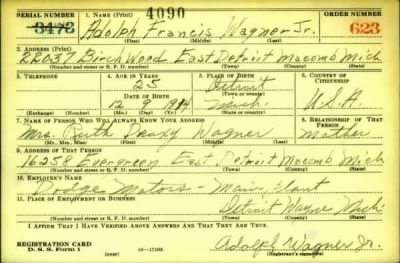 SERIAL NUMBER 1. NAME (Print) 4090 ORDER NUMBER
3473 Adolph Francis Wagner Jr. 623
(First) (Middle) (Last)
2. ADDRESS (Print)
22037 Birchwood East Detroit Macomb Mich
(Number and street or R. F. D. number) (Town) (County) (State)
3. TELEPHONE 4. AGE IN YEARS 5. PLACE OF BIRTH 6. COUNTRY OF CITIZENSHIP
25 Detroit
DATE OF BIRTH (Town or county)
12 9 1914 Mich. U.S.A.
(Exchange) (Number) (Mo.) (Day) (Yr.) (State or country)
7. NAME OF PERSON WHO WILL ALWAYS KNOW YOUR ADDRESS 8. RELATIONSHIP OF THAT PERSON
Mrs. Ruth Wagner Mother
(Mr., Mrs., Miss) (First) (Middle) (Last)
9. ADDRESS OF THAT PERSON
16258 Evergreen East Detroit Macomb Mich
(Number and street or R. F. D. number) (Town) (County) (State)
10. EMPLOYER'S NAME
Dodge Motors - Main Plant
11. PLACE OF EMPLOYMENT OR BUSINESS
Detroit Wayne Mich
(Number and street or R. F. D. number) (Town) (County) (State)
I AFFIRM THAT I HAVE VERIFIED ABOVE ANSWERS AND THAT THEY ARE TRUE.
REGISTRATION CARD
D. S. S. Form 1 (over) Adolph Wagner Jr.
(Registrant's signature)